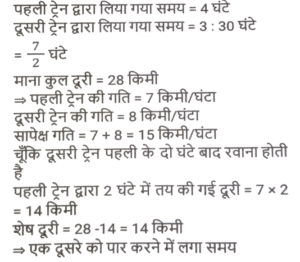 पहली ट्रेन द्वारा लिया गया समय = 4 घंटे
दूसरी ट्रेन द्वारा लिया गया समय = 3 : 30 घंटे
= 7/2 घंटे
माना कुल दूरी = 28 किमी
⇒ पहली ट्रेन की गति = 7 किमी/घंटा
दूसरी ट्रेन की गति = 8 किमी/घंटा
सापेक्ष गति = 7 + 8 = 15 किमी/घंटा
चूँकि दूसरी ट्रेन पहली के दो घंटे बाद रवाना होती
है
पहली ट्रेन द्वारा 2 घंटे में तय की गई दूरी = 7 × 2
= 14 किमी
शेष दूरी = 28 -14 = 14 किमी
⇒ एक दूसरे को पार करने में लगा समय